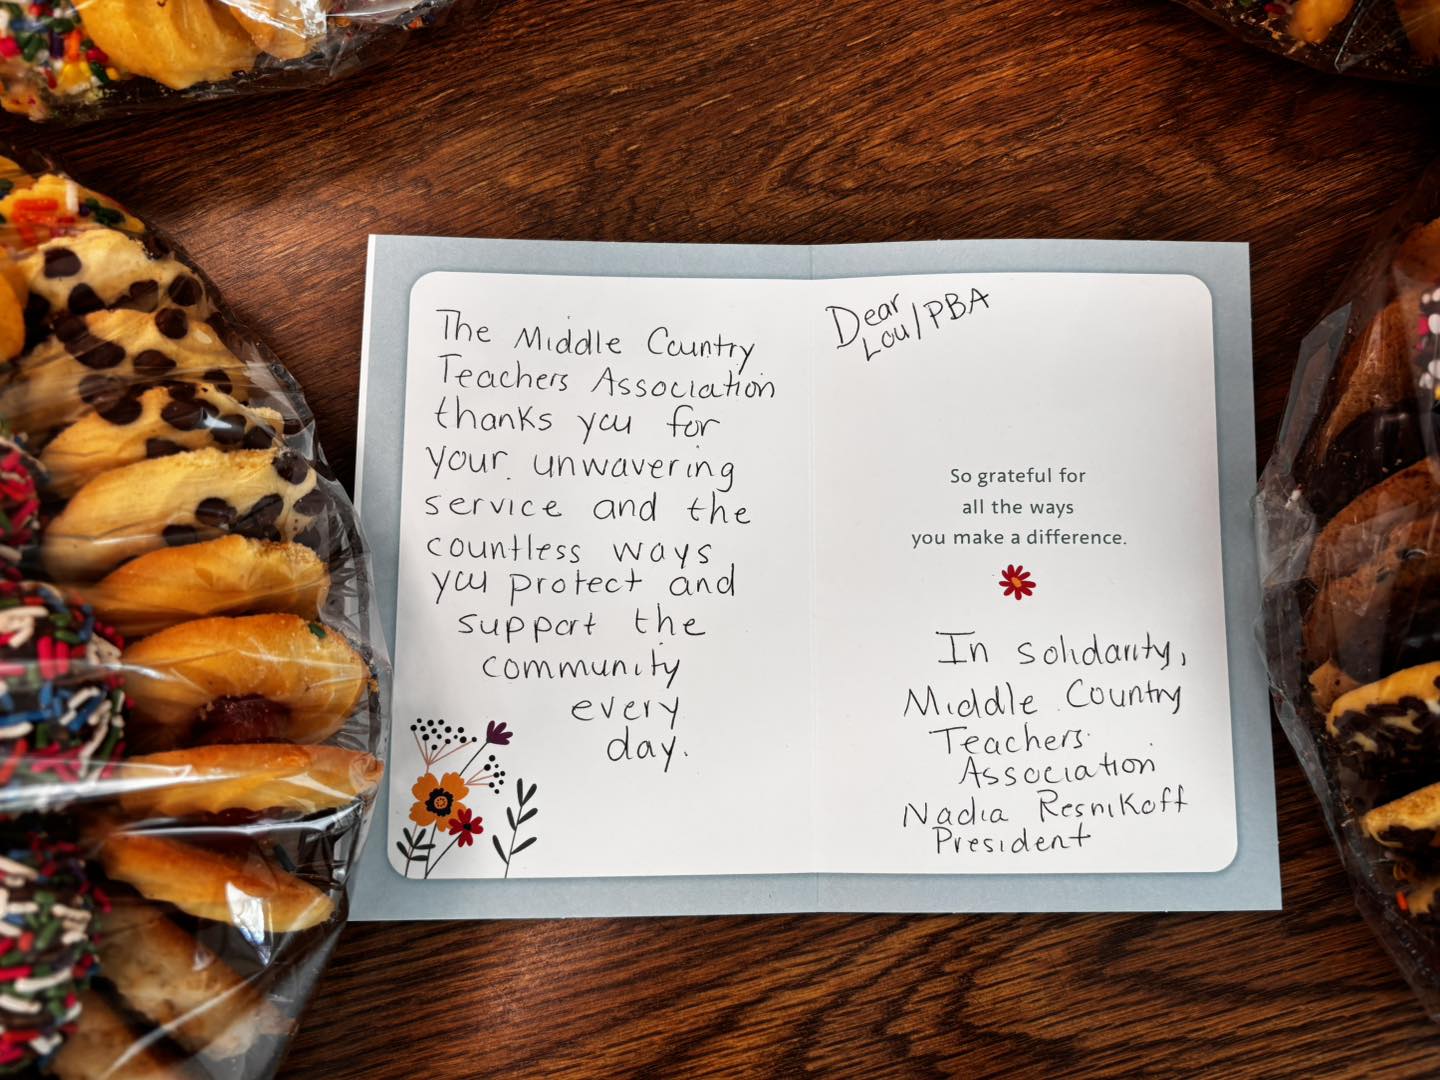 The Middle Country
Teachers Association
thanks you for
your unwavering
service and the
countless ways
you protect and
support the
community
every
day.
Dear
Lou/PBA
So grateful for
all the ways
you make a difference.
In solidarity,
Middle Country
Teachers
Association
Nadia Resnikoff
President